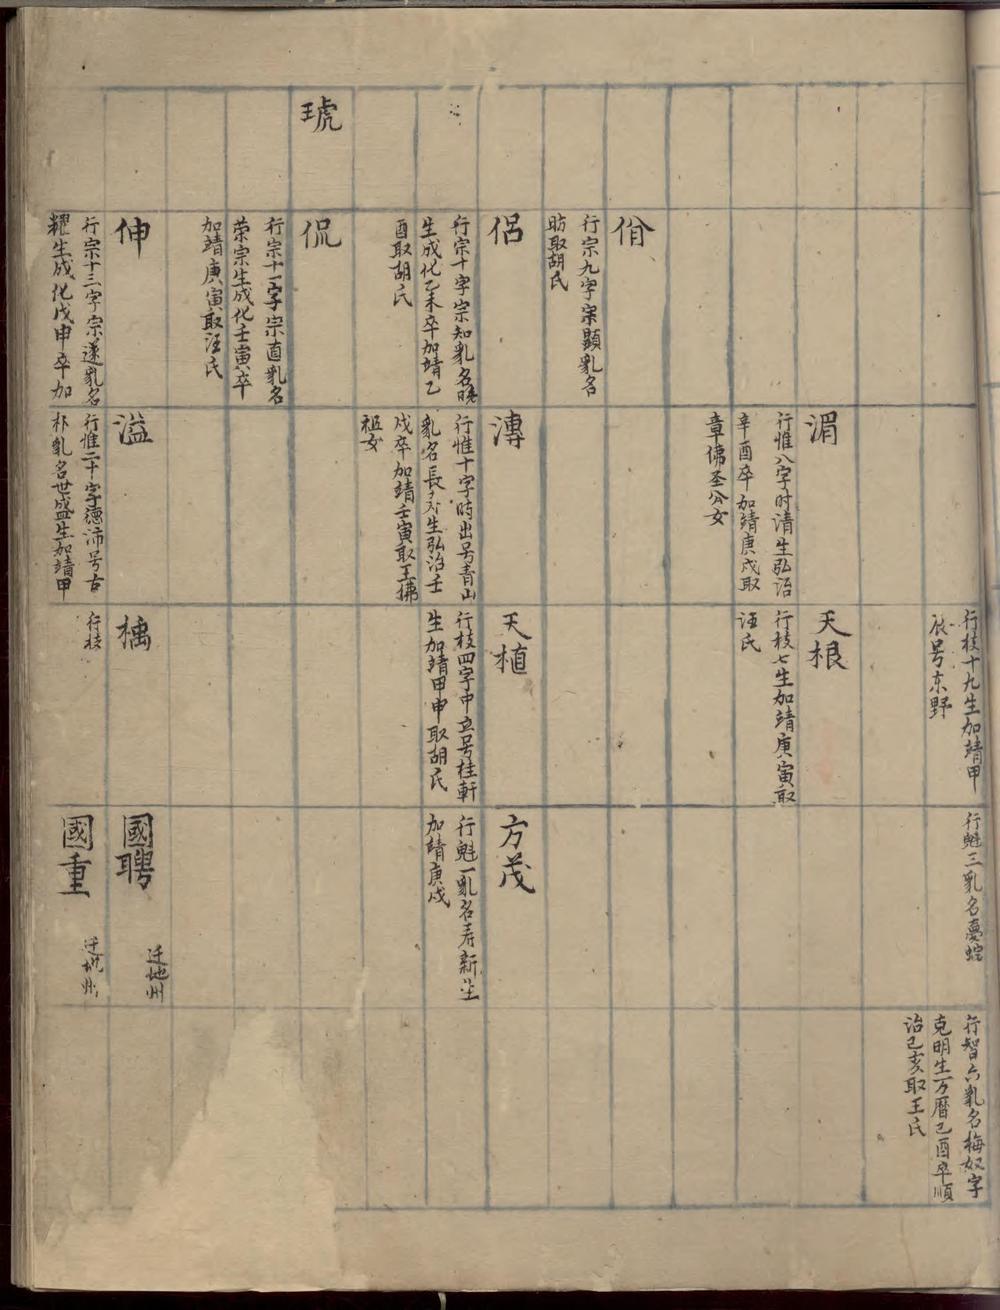 琥
佾
行宗九字宗顯乳名
昉取胡氏
侶
行宗十字宗知乳名曉
生成化乙未卒加靖乙
酉取胡氏
侃
行宗十一字宗直乳名
荣宗生成化壬寅卒
加靖庚寅取汪氏
伸
行宗十三字宗遂乳名
糶生成化戊申卒加
湄
行惟八字时清生弘治
辛酉卒加靖庚戌取
章佛圣公女
漙
行惟十字時出号青山
乳名長才生弘治壬
戌卒加靖壬寅取王佛
祖女
溢
行惟二十字德沛号古
朴乳名世盛生加靖甲
行枝十九生加靖甲
辰号东野
天根
行枝七生加靖庚寅取
汪氏
天植
行枝四字中立号桂軒
生加靖甲申取胡氏
行枝
行魁三乳名憂蛇
方茂
行魁一乳名寿新生
加靖庚戌
國聘
迁地州
國重
迁地州
行智六乳名梅奴字
克明生万曆己酉卒順
治己亥取王氏